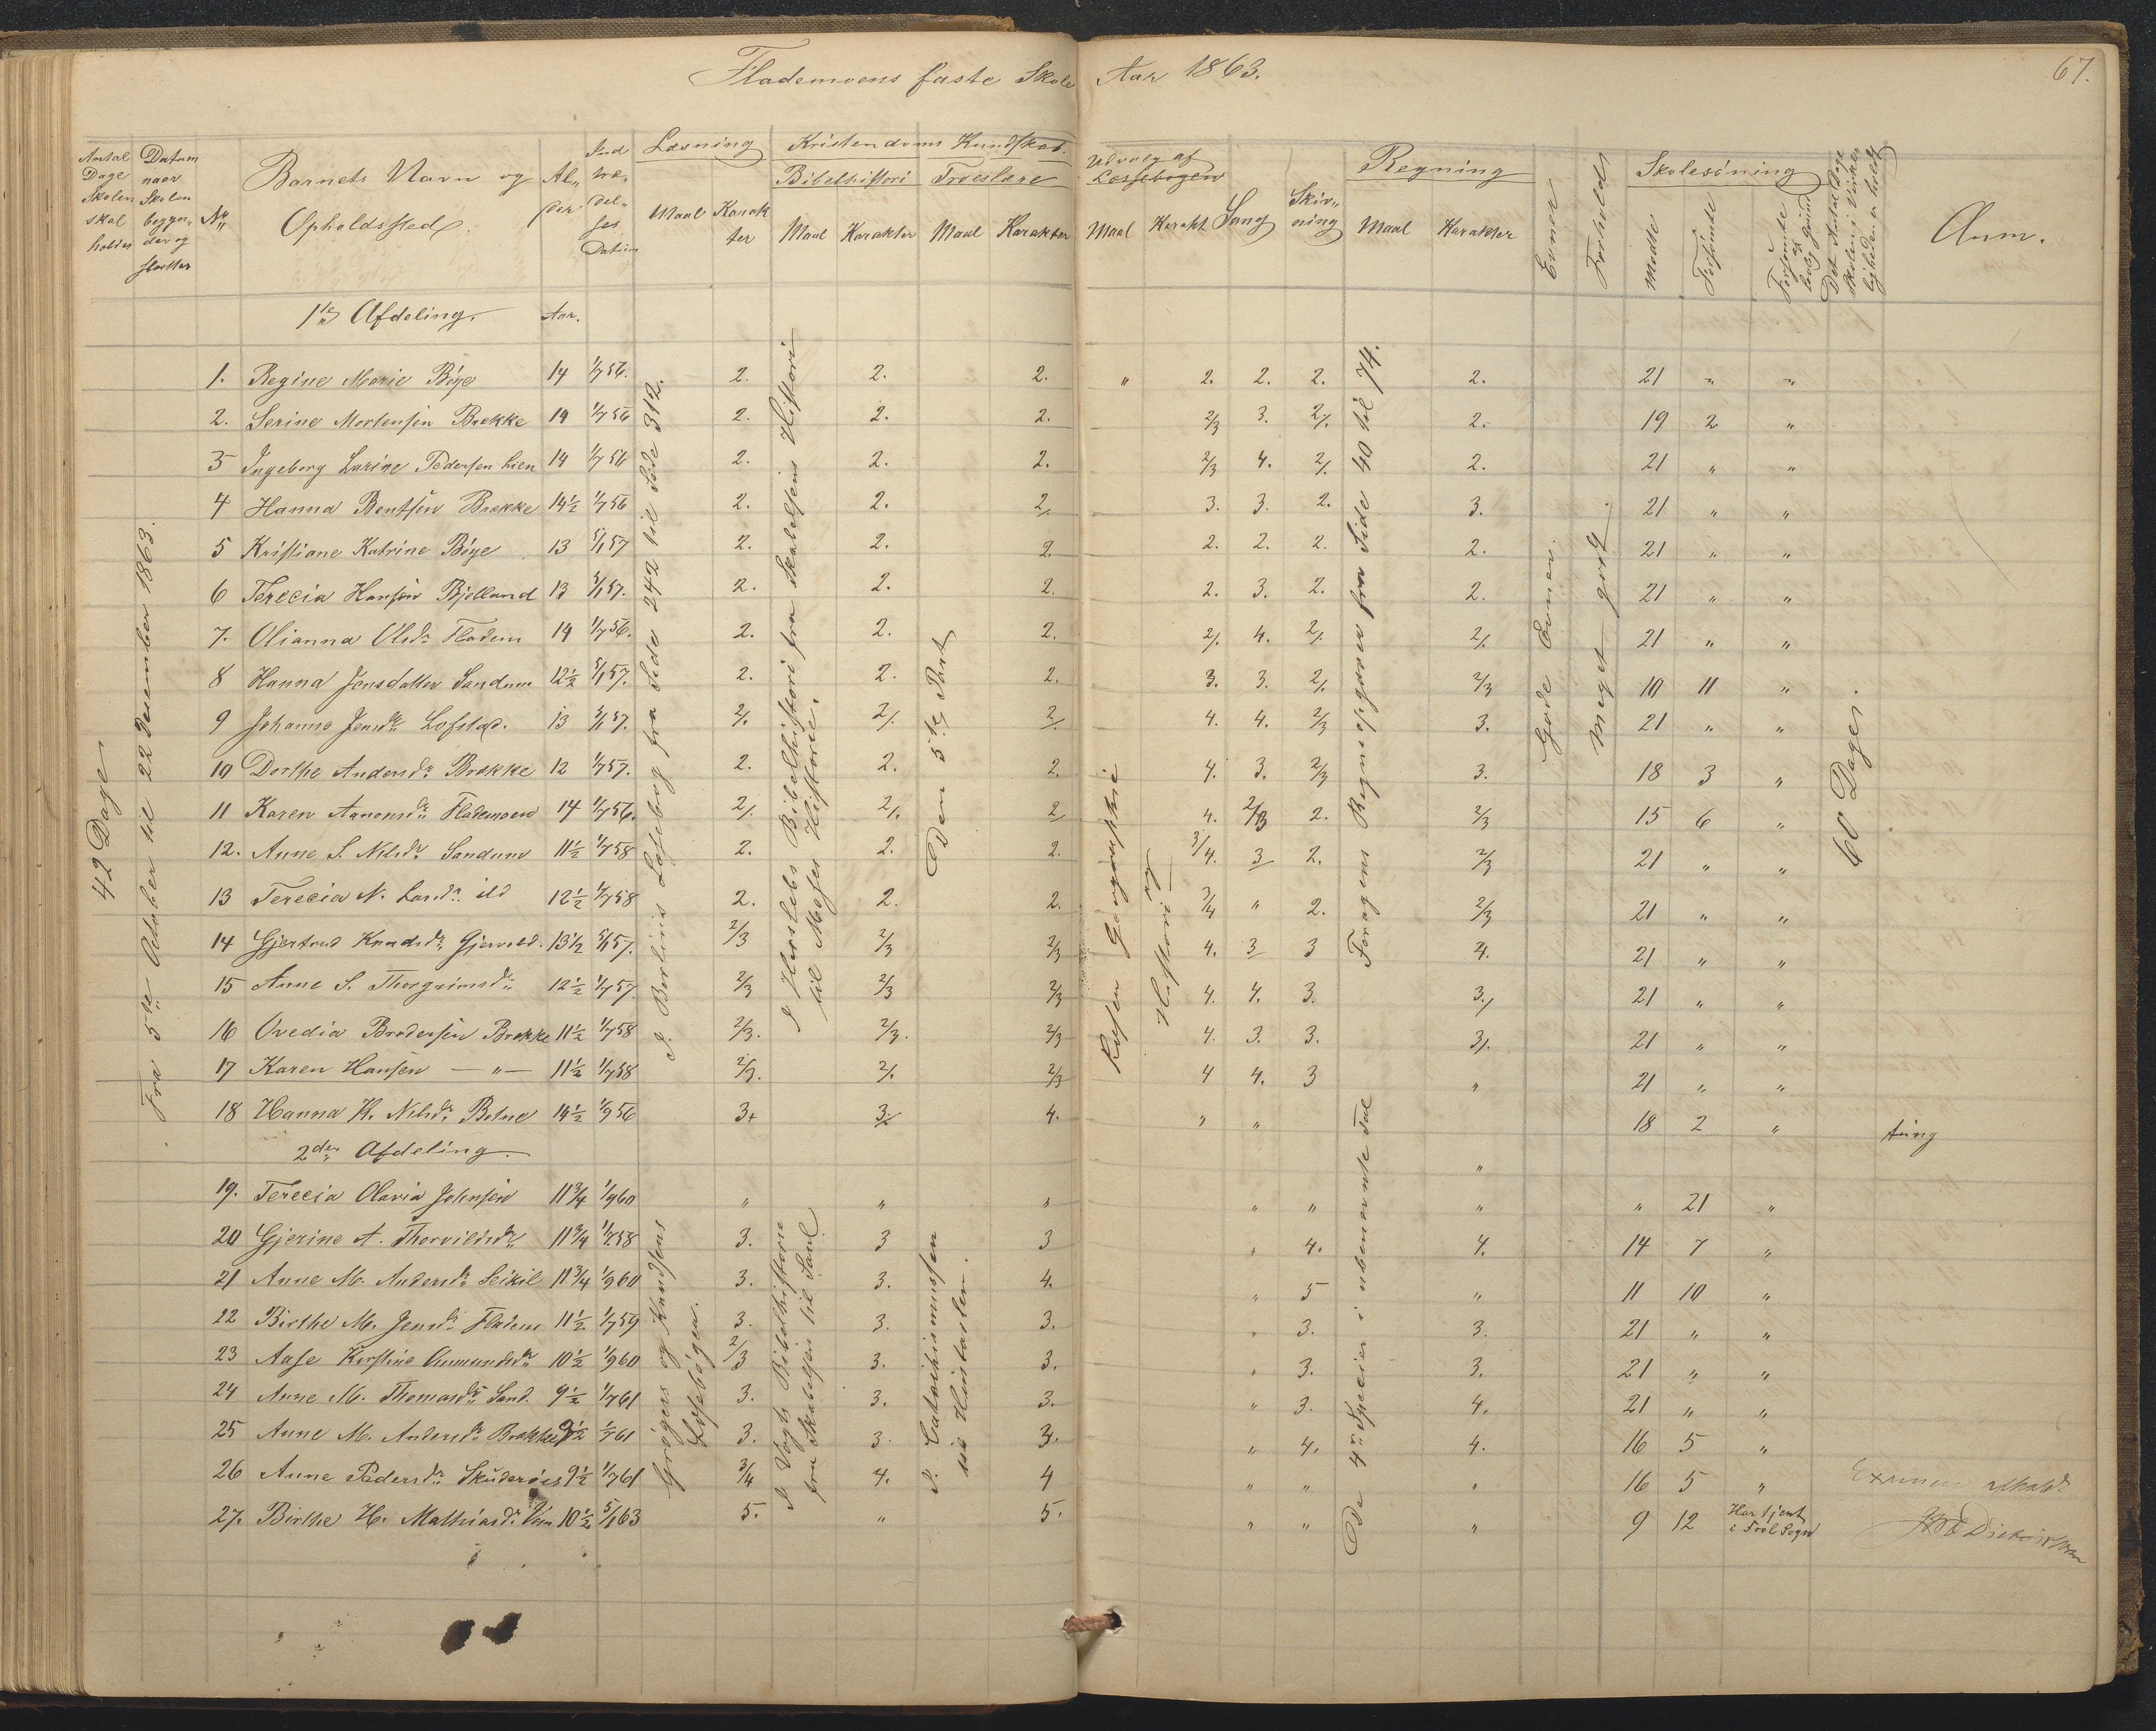 Flademoens faste Skole Aar 1863. 67.
Antal Dage Skolen skal holdes
Datum naar Skolen begyn„ der og slutter
No
Barnets Navn og Opholdssted.
Al„ der
Ind træ„ del„ ses Datum
Læsning
Maal Karak ter
Kristendoms Kundskab.
Bibelhistori Troeslære
Maal Karakter Maal Karakter
Udvalg af Læsebogen
Maal Karakt
Sang
Skriv„ ning
Regning
Maal Karakter
Evner
Forhold
Skolesögning
Mödte Forsömte Forsömte af lovlig Grund
Det Antal Dage Skolen i Virke„ ligheden er holdt
Anm.
1ste Afdeling. Aar.
42 Dage
Fra 5te October til 22 December 1863.
I Borlins Læsebog fra Side 242 til Side 312.
I Herslebs Bibelhistori fra Skabelsens Histori
til Moses Historie.
Den 5te Part
Geographie og Histori
Foragens Regneopgaver fra Side 40 til 74.
Gode Evner.
Meget godt
60 Dage.
1. Regine Marie Böye 14 1/7 56. 2. 2. 2. „ 2. 2. 2. 2. 21 „ „
2. Serine Mortensen Brække 14 1/7 56 2. 2. 2. 2/3 3. 2/. 2. 19 2 „
3 Ingeborg Larine Pedersen Lien 14 1/7 56 2. 2. 2. 2/3 4. 2/. 2. 21 „ „
4 Hanna Bentsen Brække 14½ 1/7 56 2. 2. 2/. 3. 3. 2. 3. 21 „ „
5 Kristiane Katrine Böye 13 5/1 57 2. 2. 2. 2. 2. 2. 2. 21 „ „
6 Terecia Hansen Bjelland 13 5/1 57. 2. 2. 2. 2. 3. 2. 2. 21 „ „
7. Olianna Olsdr Fladem 14 1/7 56. 2. 2. 2. 2/. 4. 2/. 2/. 21 „ „
8 Hanna Jensdatter Sandum 12½ 5/1 57. 2. 2. 2. 3. 3. 2/. 2/3 10 11 „
9 Johanne Jensdr Lofstad. 13 5/1 57. 2/. 2/. 2/. 4. 4. 2/3 3. 21 „ „
10 Dorthe Andersdr Brække 12 1/7 57. 2. 2. 2. 4. 3. 2/3 3. 18 3 „
11 Karen Aanonsdr Flademoen 14 1/7 56. 2/. 2/. 2/ 4. 2/3 2. 2/3 15 6 „
12. Anne S. Nilsdr Sandum 11½ 1/7 58 2. 2. 2. 3/4. 3 2. 2/3 21 „ „
13 Terecia N. 12½ 1/7 58 2. 2. 2. 3/4 „ 2. 2/3 21 „ „
14 Gjertrud Knudsdr 13½ 5/1 57. 2/3 2/3 2/3 4. 3 3 4. 21 „ „
15 Anne S. Thorgrimsdr 12½ 1/7 57. 2/3 2/3 2/3 4. 4. 3. 3./ 21 „ „
16 Ovedia Brodersen Brække 11½ 1/7 58 2/3. 2/3. 2/3 4. 3. 3. 3/. 21 „ „
17 Karen Hansen — „ — 11½ 1/7 58 2/3. 2/. 2/3 4 4. 3 „ 21 „ „
18 Hanna K. Nilsdr 14½ 1/9 56 3+ 3/. 4. „ „ 18 2 „ tung
2den Afdeling.
Grögers og Knudsens Læsebögen.
I Vogts Bibelhistorie fra Skabelsen til Saul
I Catechismussen
De 4re Specier i ubenævnte Tal
19. Terecia Olavia Johnsen 11¾ 1/9 60 „ „ „ „ „ „ „ 21 „
20 Gjerine A. Thorvildsdr 11¾ 1/7 58 3. 3 3 „ 4. 4. 14 7 „
21 Anne M. Andersdr 11¾ 1/9 60 3. 3. 4. „ 5 „ 11 10 „
22 Birthe M. Jensdr Fladem 11½ 1/7 59 3. 3. 3. „ 3. 3. 21 „ „
23 Aase Kirstine 10½ 1/9 60 2/3 3. 3. „ 3. 3. 21 „ „
24 Anne M. Thomasdr Sand. 9½ 1/7 61 3. 3. 3. „ 3. 4. 21 „ „
25 Anne M. Andersdr Brække 9½ 1/7 61 3. 3. 3. „ 4. 4. 16 5 „
26 Anne Pedersdr 9½ 1/7 61 3/4 4. 4 „ „ „ 16 5 „
27. Birthe H. Mathiasdr 10½ 5/1 63 5. „ 5. „ „ „ 9 12 Har tjent i Sogn
Examen afholdt